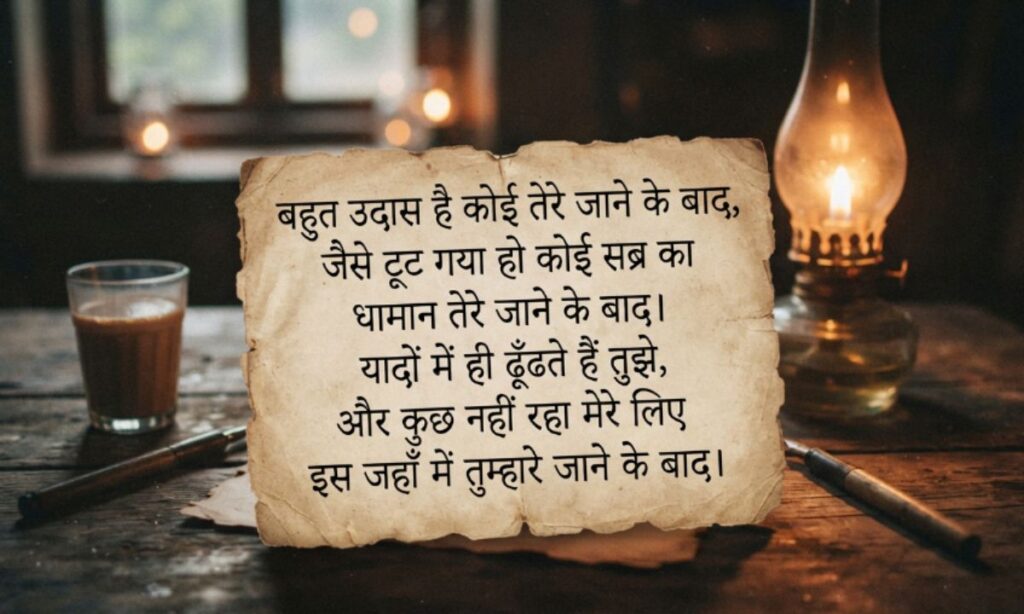 बहुत उदास है कोई तेरे जाने के बाद,
जैसे टूट गया हो कोई सब्र का
धामान तेरे जाने के बाद।
यादों में ही ढूँढते हैं तुझे,
और कुछ नहीं रहा मेरे लिए
इस जहाँ में तुम्हारे जाने के बाद।